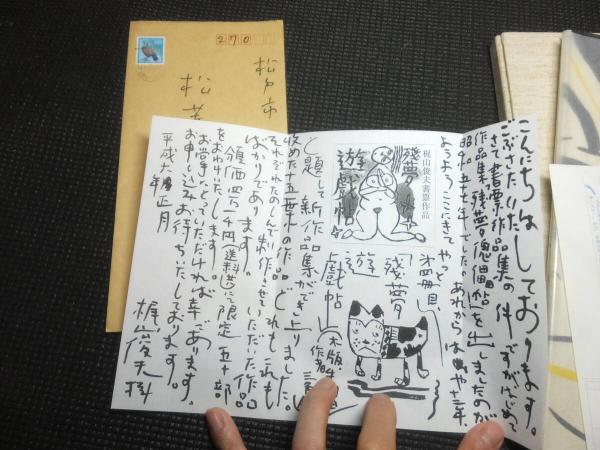 270
松戸市
松
こんにちは
ごぶさたいたしております。
さて書票作品集の件ですがはじめて
作品集「残夢傀儡帖」を出しましたのが
昭和五十七年でした。あれからはや十三年、
ようようここにきてやっと第四冊目、
梶山俊夫書票作品
残夢
遊戯帖
「残夢
遊戯帖」
と題し新作品集ができ上りました。
収めた十五葉の作品どれもこれも
それぞれたのしんで制作させていただいた作品
ばかりであります。
領価四万一千円(送料共)にて限定五十部
をおわけいたします。
お手にとっていただければ幸であります。
お申し込みお待ちいたしております。
平成六年正月
梶山俊夫拝